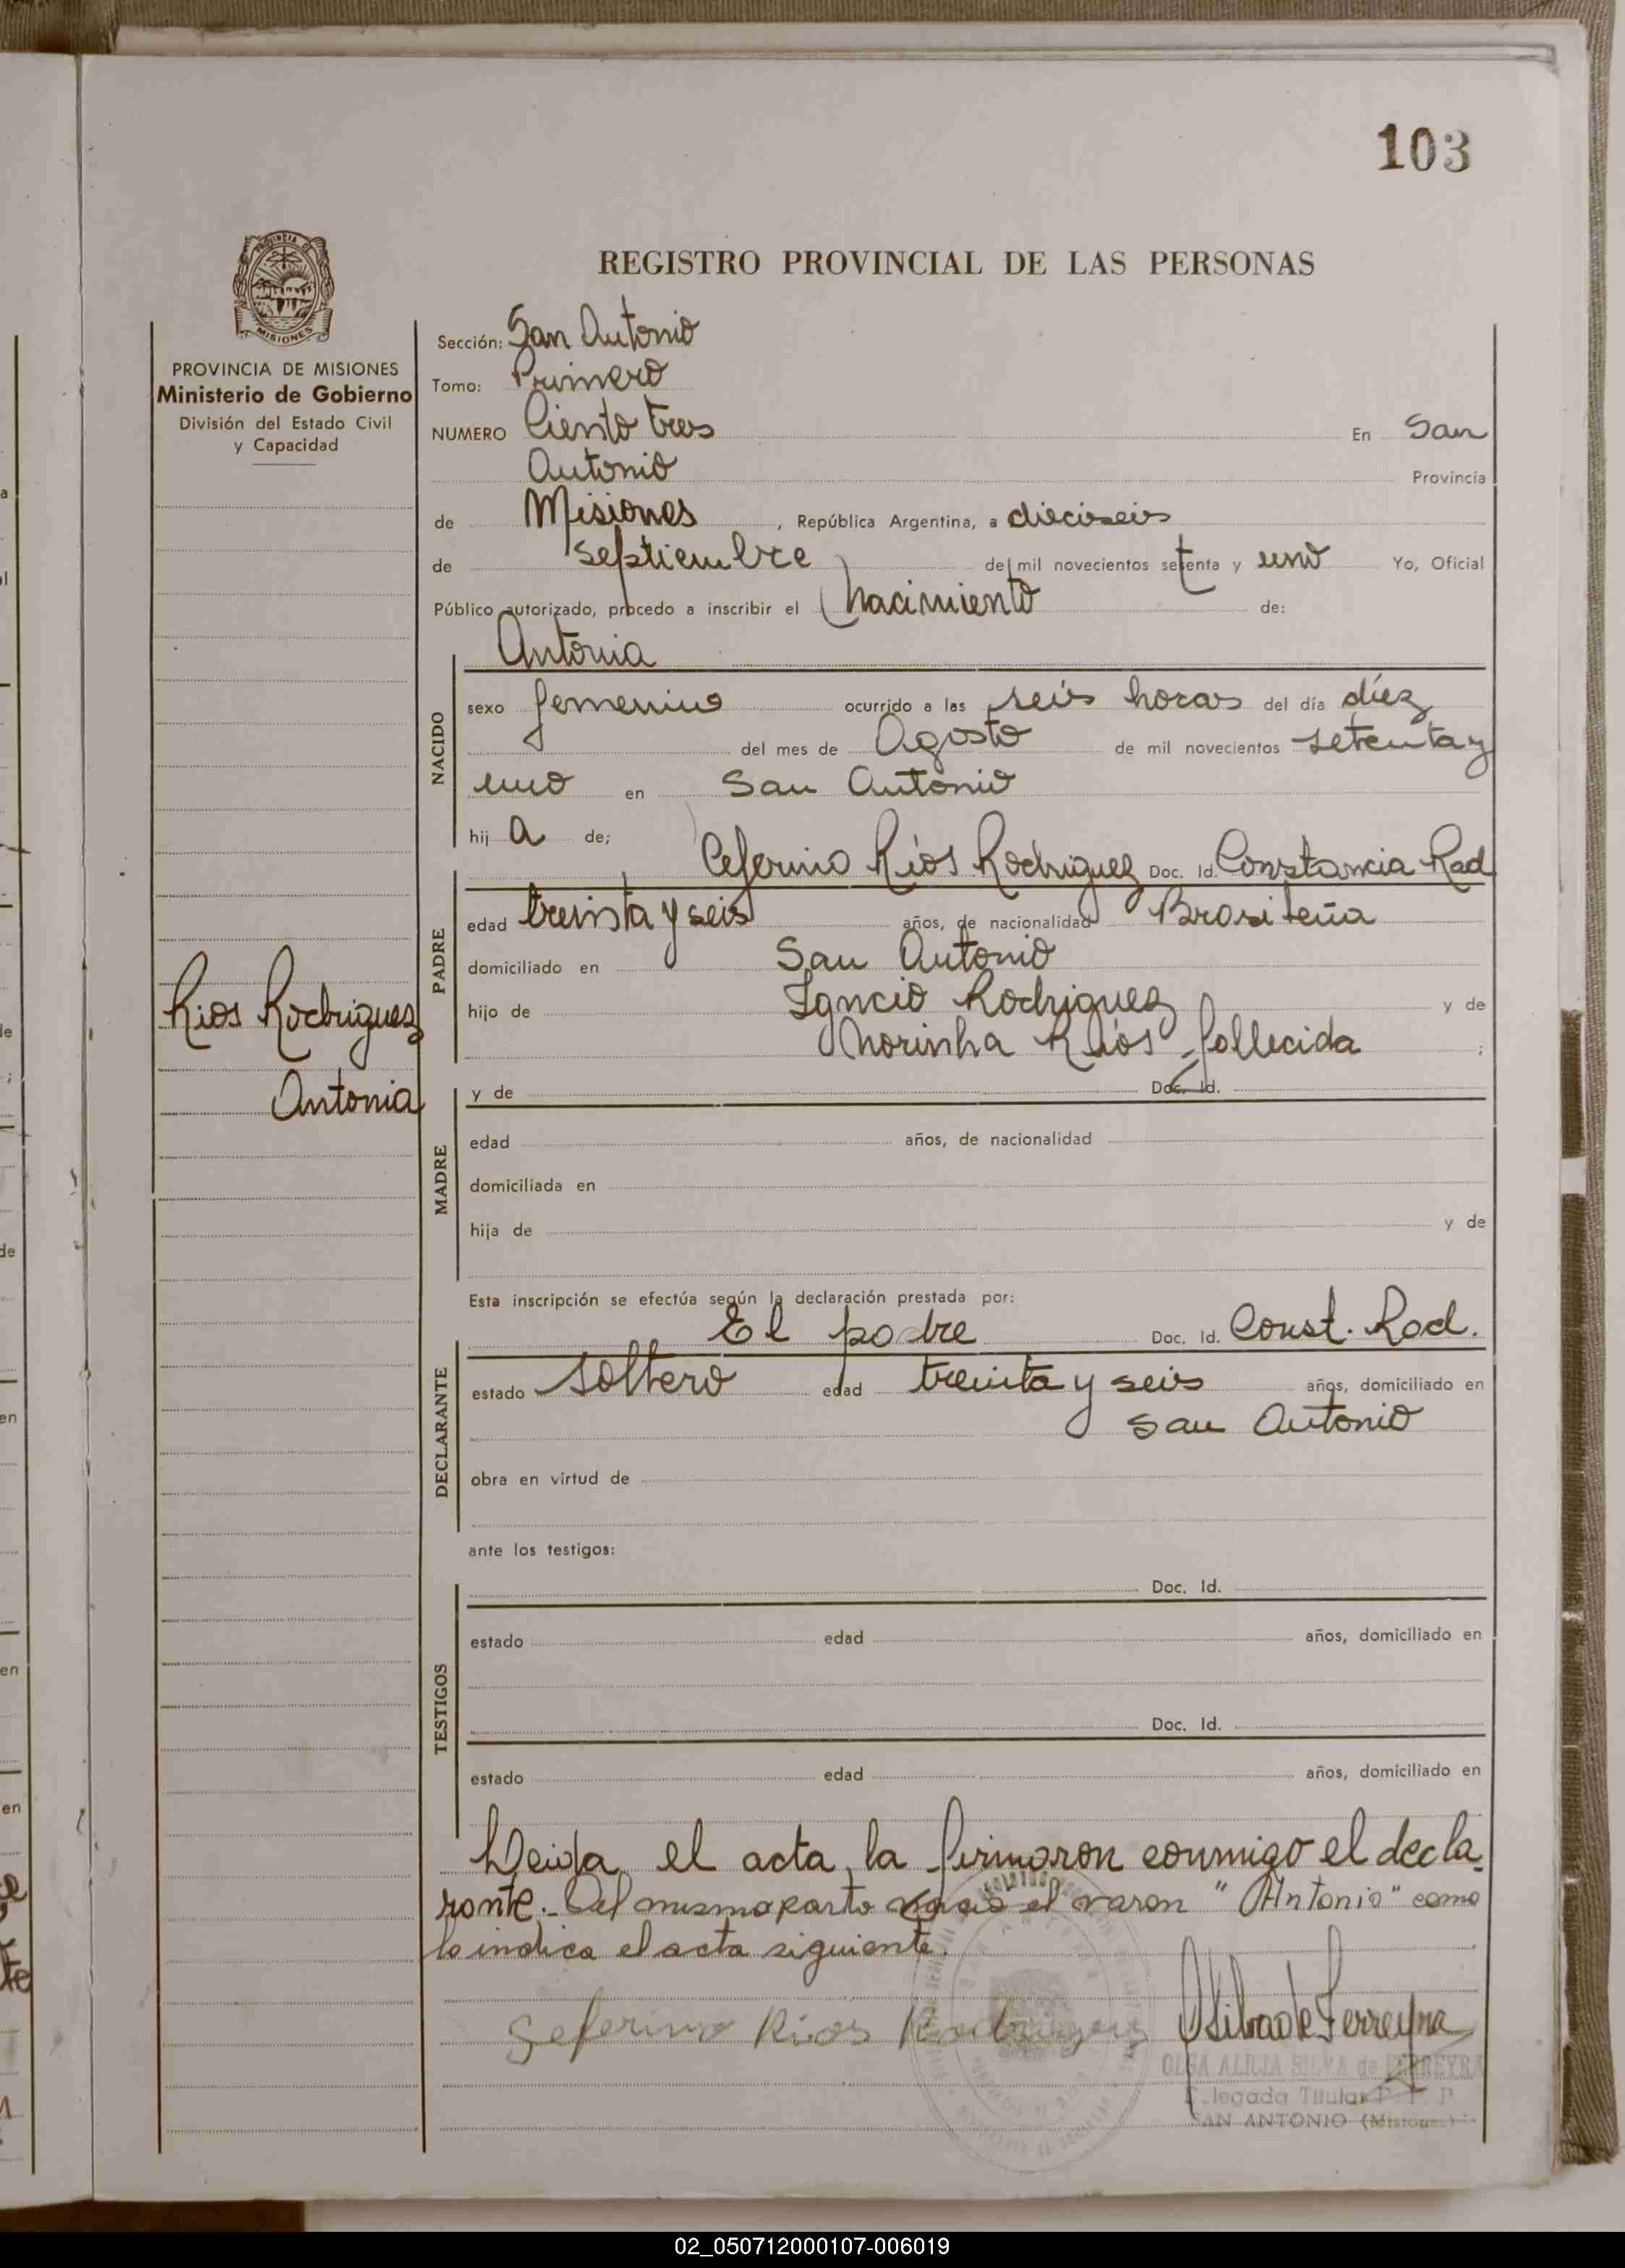 103
REGISTRO PROVINCIAL DE LAS PERSONAS
PROVINCIA
MISIONES
PROVINCIA DE MISIONES
Ministerio de Gobierno
División del Estado Civil
y Capacidad
Sección: San Antonio
Tomo: Primero
NUMERO Ciento tres En San
Antonio Provincia
de Misiones, República Argentina, a dieciseis
de septiembre de mil novecientos setenta y uno Yo, Oficial
Público autorizado, procedo a inscribir el nacimiento de:
Antonia
NACIDO
sexo femenino ocurrido a las seis horas del día díez
del mes de Agosto de mil novecientos setenta y
uno en San Antonio
hij a de;
Ceferino Ríos Rodriguez Doc. Id. Constancia Rad
PADRE
edad treinta y seis años, de nacionalidad Brasileña
domiciliado en San Antonio
hijo de Igncio Rodriguez y de
Norinha Ríos fallecida ;
Rios Rodriguez
Antonia
MADRE
y de Doc. Id.
edad años, de nacionalidad
domiciliada en
hija de y de
Esta inscripción se efectúa según la declaración prestada por:
El padre Doc. Id. Const. Rad.
DECLARANTE
estado soltero edad treinta y seis años, domiciliado en
San Antonio
obra en virtud de
ante los testigos:
Doc. Id.
TESTIGOS
estado edad años, domiciliado en
Doc. Id.
estado edad años, domiciliado en
Leida el acta, la firmaron conmigo el decla
rante.- Del mismo parto nacio el varon "Antonio" como
lo indica el acta siguiente.
Seferino Rios Rodriguez
OSilva de Ferreyra
OLGA ALICIA SILVA de FERREYRA
Delegada Titular
SAN ANTONIO (Misiones)
02_050712000107-006019